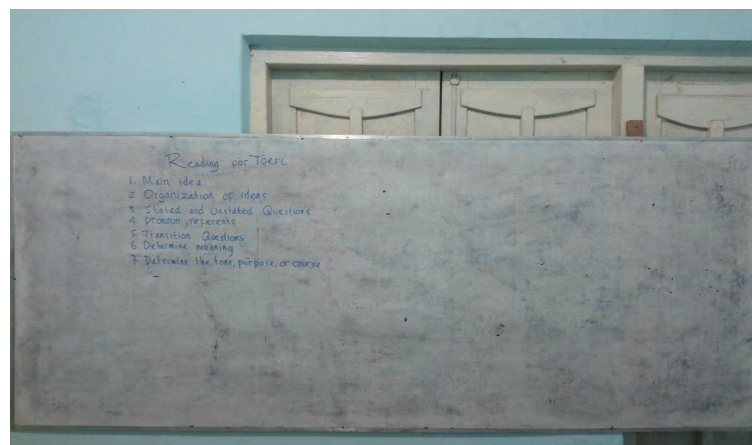 Reading for TOEFL
1. Main idea
2 Organization of ideas
3 Stated and Unstated Questions
4 pronoun, referents
5 Transition Questions
6 Determine meaning
7 Determine the tone, purpose, or course